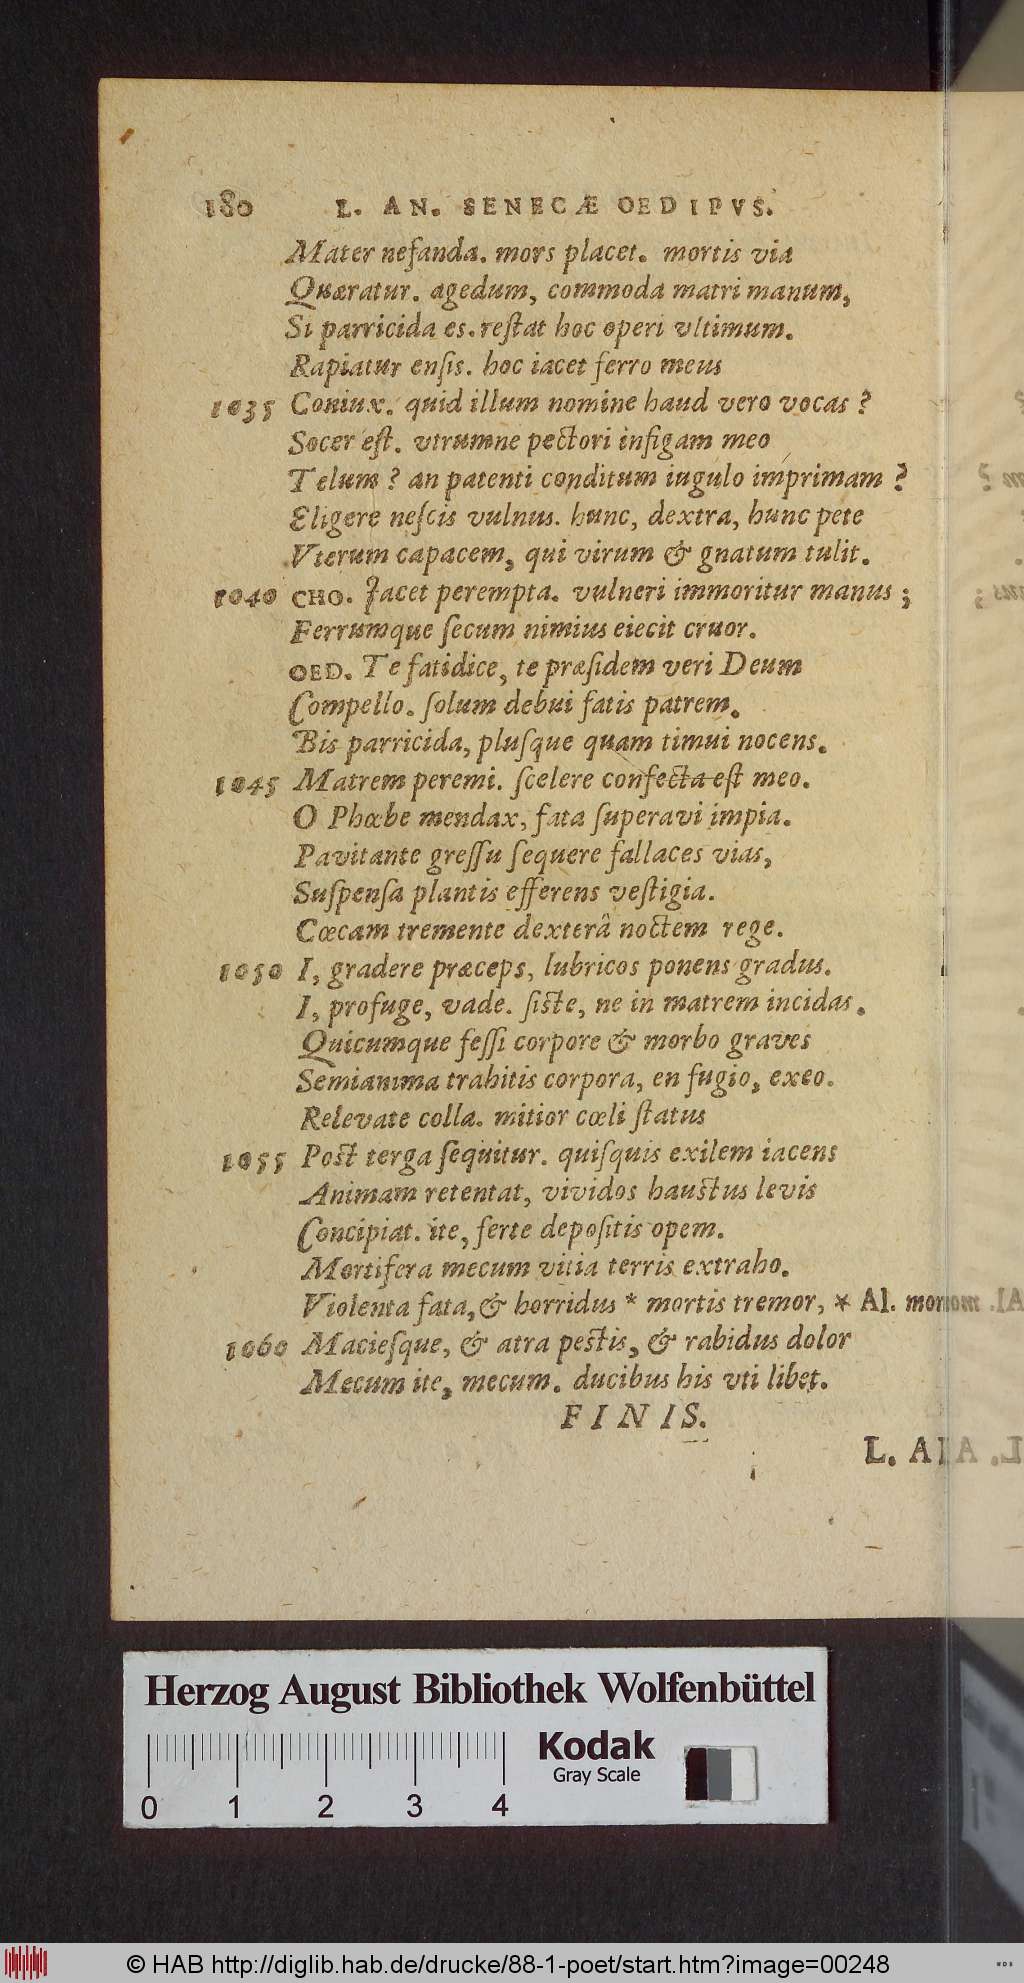 180 L. AN. SENECÆ OEDIPVS.
Mater nefanda. mors placet. mortis via
Quæratur. agedum, commoda matri manum,
Si parricida es. reſtat hoc operi vltimum.
Rapiatur enſis. hoc iacet ferro meus
1035 Coniux. quid illum nomine haud vero vocas ?
Socer eſt. vtrumne pectori infigam meo
Telum ? an patenti conditum iugulo imprimam ?
Eligere neſcis vulnus. hunc, dextra, hunc pete
Vterum capacem, qui virum & gnatum tulit.
1040 CHO. Jacet perempta. vulneri immoritur manus ;
Ferrumque ſecum nimius eiecit cruor.
OED. Te fatidice, te præſidem veri Deum
Compello. ſolum debui fatis patrem.
Bis parricida, pluſque quam timui nocens.
1045 Matrem peremi. ſcelere confecta eſt meo.
O Phœbe mendax, fata ſuperavi impia.
Pavitante greſſu ſequere fallaces vias,
Suſpenſa plantis efferens veſtigia.
Cœcam tremente dexterâ noctem rege.
1050 I, gradere præceps, lubricos ponens gradus.
I, profuge, vade. ſiſte, ne in matrem incidas.
Quicumque feſſi corpore & morbo graves
Semianima trahitis corpora, en fugio, exeo.
Relevate colla. mitior cœli ſtatus
1055 Poſt terga ſequitur. quiſquis exilem iacens
Animam retentat, vividos hauſtus levis
Concipiat. ite, ferte depoſitis opem.
Mortifera mecum vitia terris extraho.
Violenta fata, & horridus * mortis tremor, * Al.
1060 Macieſque, & atra peſtis, & rabidus dolor
Mecum ite, mecum. ducibus his vti libet.
FINIS.
L.
Herzog August Bibliothek Wolfenbüttel
Kodak
Gray Scale
0 1 2 3 4
© HAB http://diglib.hab.de/drucke/88-1-poet/start.htm?image=00248